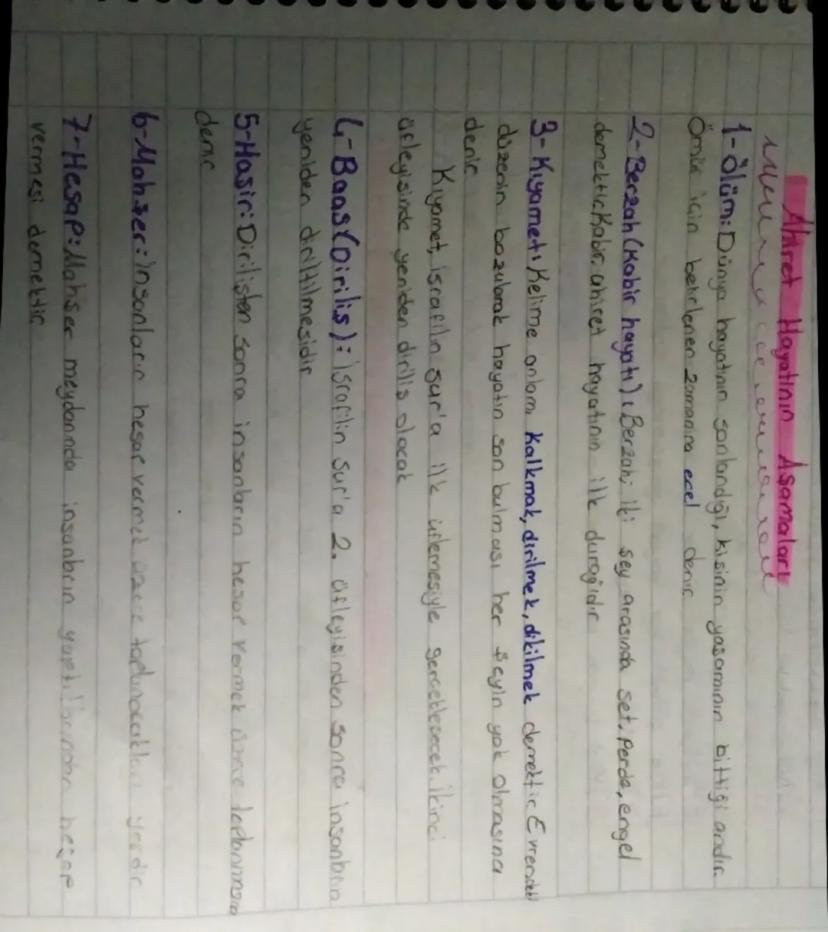 Ahiret Hayatının Aşamaları
1-Ölüm: Dünya hayatının sonlandığı, kişinin yaşamının bittiği andır.
Ömür için belirlenen zamanına ecel denir
2-Berzah(Kabir hayatı): Berzah; iki şey arasında set, perde, engel
demektir. Kabir, ahiret hayatının ilk durağıdır
3-Kıyamet: Kelime anlamı kalkmak, dirilmek, dikilmek demektir. Evrendeki
düzenin bozularak hayatın son bulması her şeyin yok olmasına
denir
Kıyamet, israfiln sur'a ilk üflemesiyle gerçekleşecek. ikinci
üfleyişinde yeniden diriliş olacak
4-Baas(Diriliş): İsrafilin sur'a 2. üfleyişinden sonra insanların
yeniden diriltilmesidir
5-Haşir: Dirilişten sonra insanların hesap vermek üzere toplanmasına
denir
6-Mahşer: insanların hesap vermek üzere toplanacakları yerdir
7-Hesap: Mahşer meydanında insanların yaptıklarından hesap
vermesi demektir